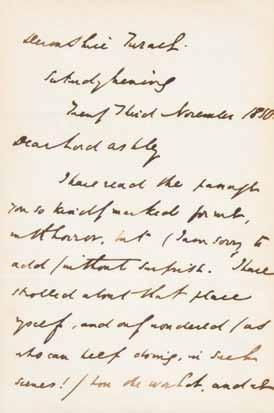 Devonshire Terrace.
Saturday Evening
Twenty Third November 1850
Dear Lord Ashley
I have read the passage
you so kindly marked for me,
with horror, but (I am sorry to
add) without surprise. I have
strolled about that place
myself, and only wondered (as
who can help doing, in such
scenes!) how the world, and